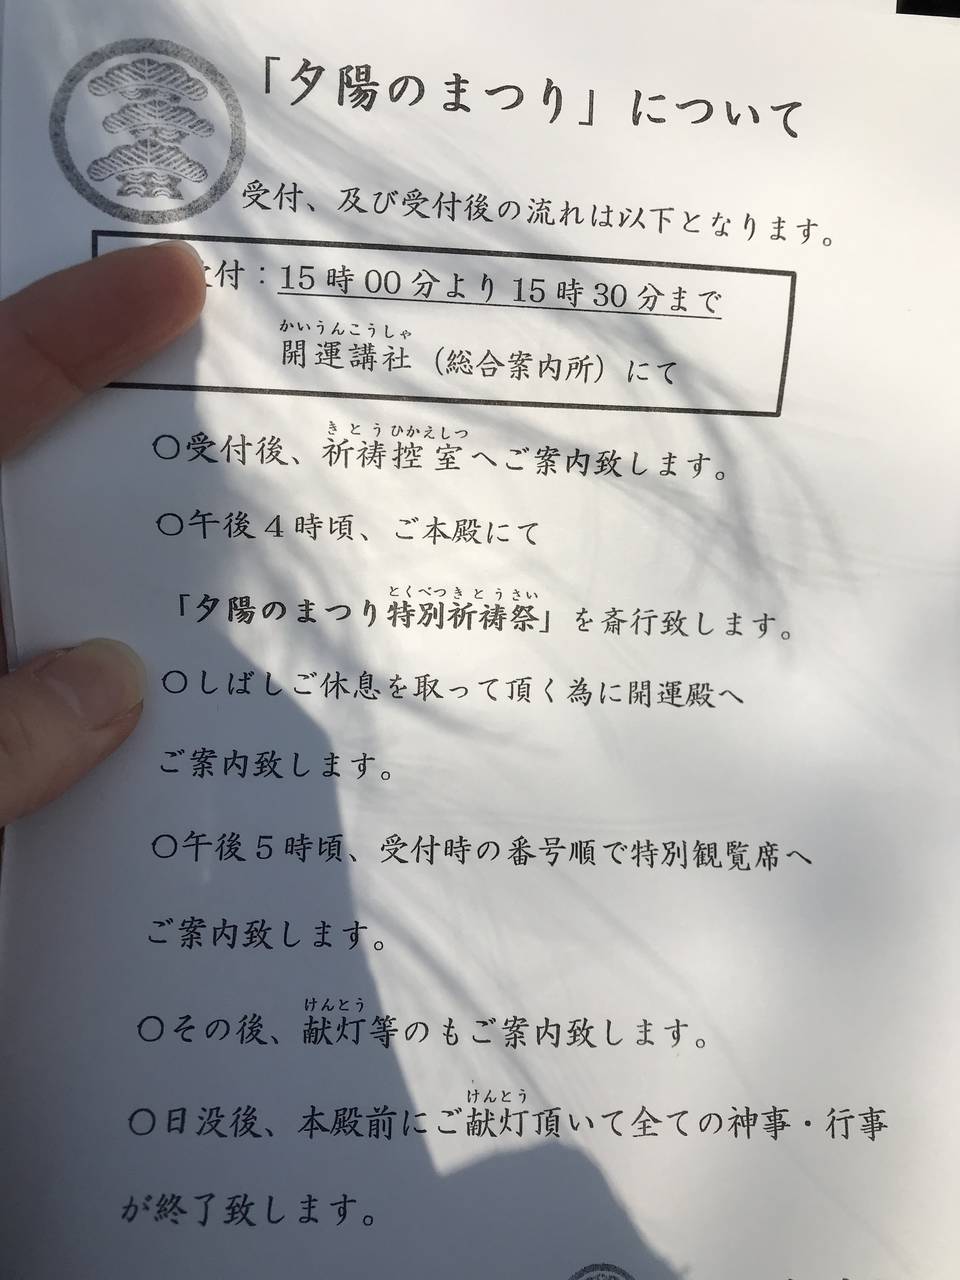 「夕陽のまつり」について
受付、及び受付後の流れは以下となります。
付：15時00分より15時30分まで
かいうんこうしゃ
開運講社（総合案内所）にて
きとうひかえしつ
〇受付後、祈祷控室へご案内致します。
〇午後4時頃、ご本殿にて
とくべつきとうさい
「夕陽のまつり特別祈祷祭」を斎行致します。
〇しばしご休息を取って頂く為に開運殿へ
ご案内致します。
〇午後5時頃、受付時の番号順で特別観覧席へ
ご案内致します。
けんとう
〇その後、献灯等のもご案内致します。
けんとう
〇日没後、本殿前にご献灯頂いて全ての神事・行事
が終了致します。